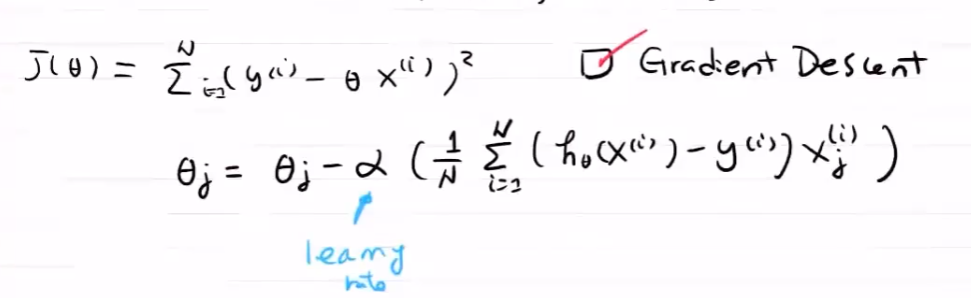 J(θ) = Σ_{i=1}^{N} (y^{(i)} − θ x^{(i)})² Gradient Descent
θ_j = θ_j − α (1/N Σ_{i=1}^{N} (h_θ(x^{(i)}) − y^{(i)}) x_j^{(i)})
learning
rate